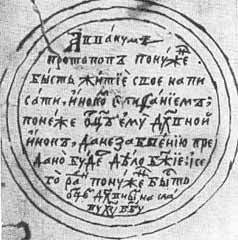 Аввакумъ
протопопъ понуже
бысть житие свое напи
сати, инокомъ Епифаниемъ,
понеже отецъ ему духовной
инокъ, да не забвению пре
дано будетъ дѣло божие; и се
го ради понуженъ бысть
отцемъ духовнымъ на сла
ву Христу